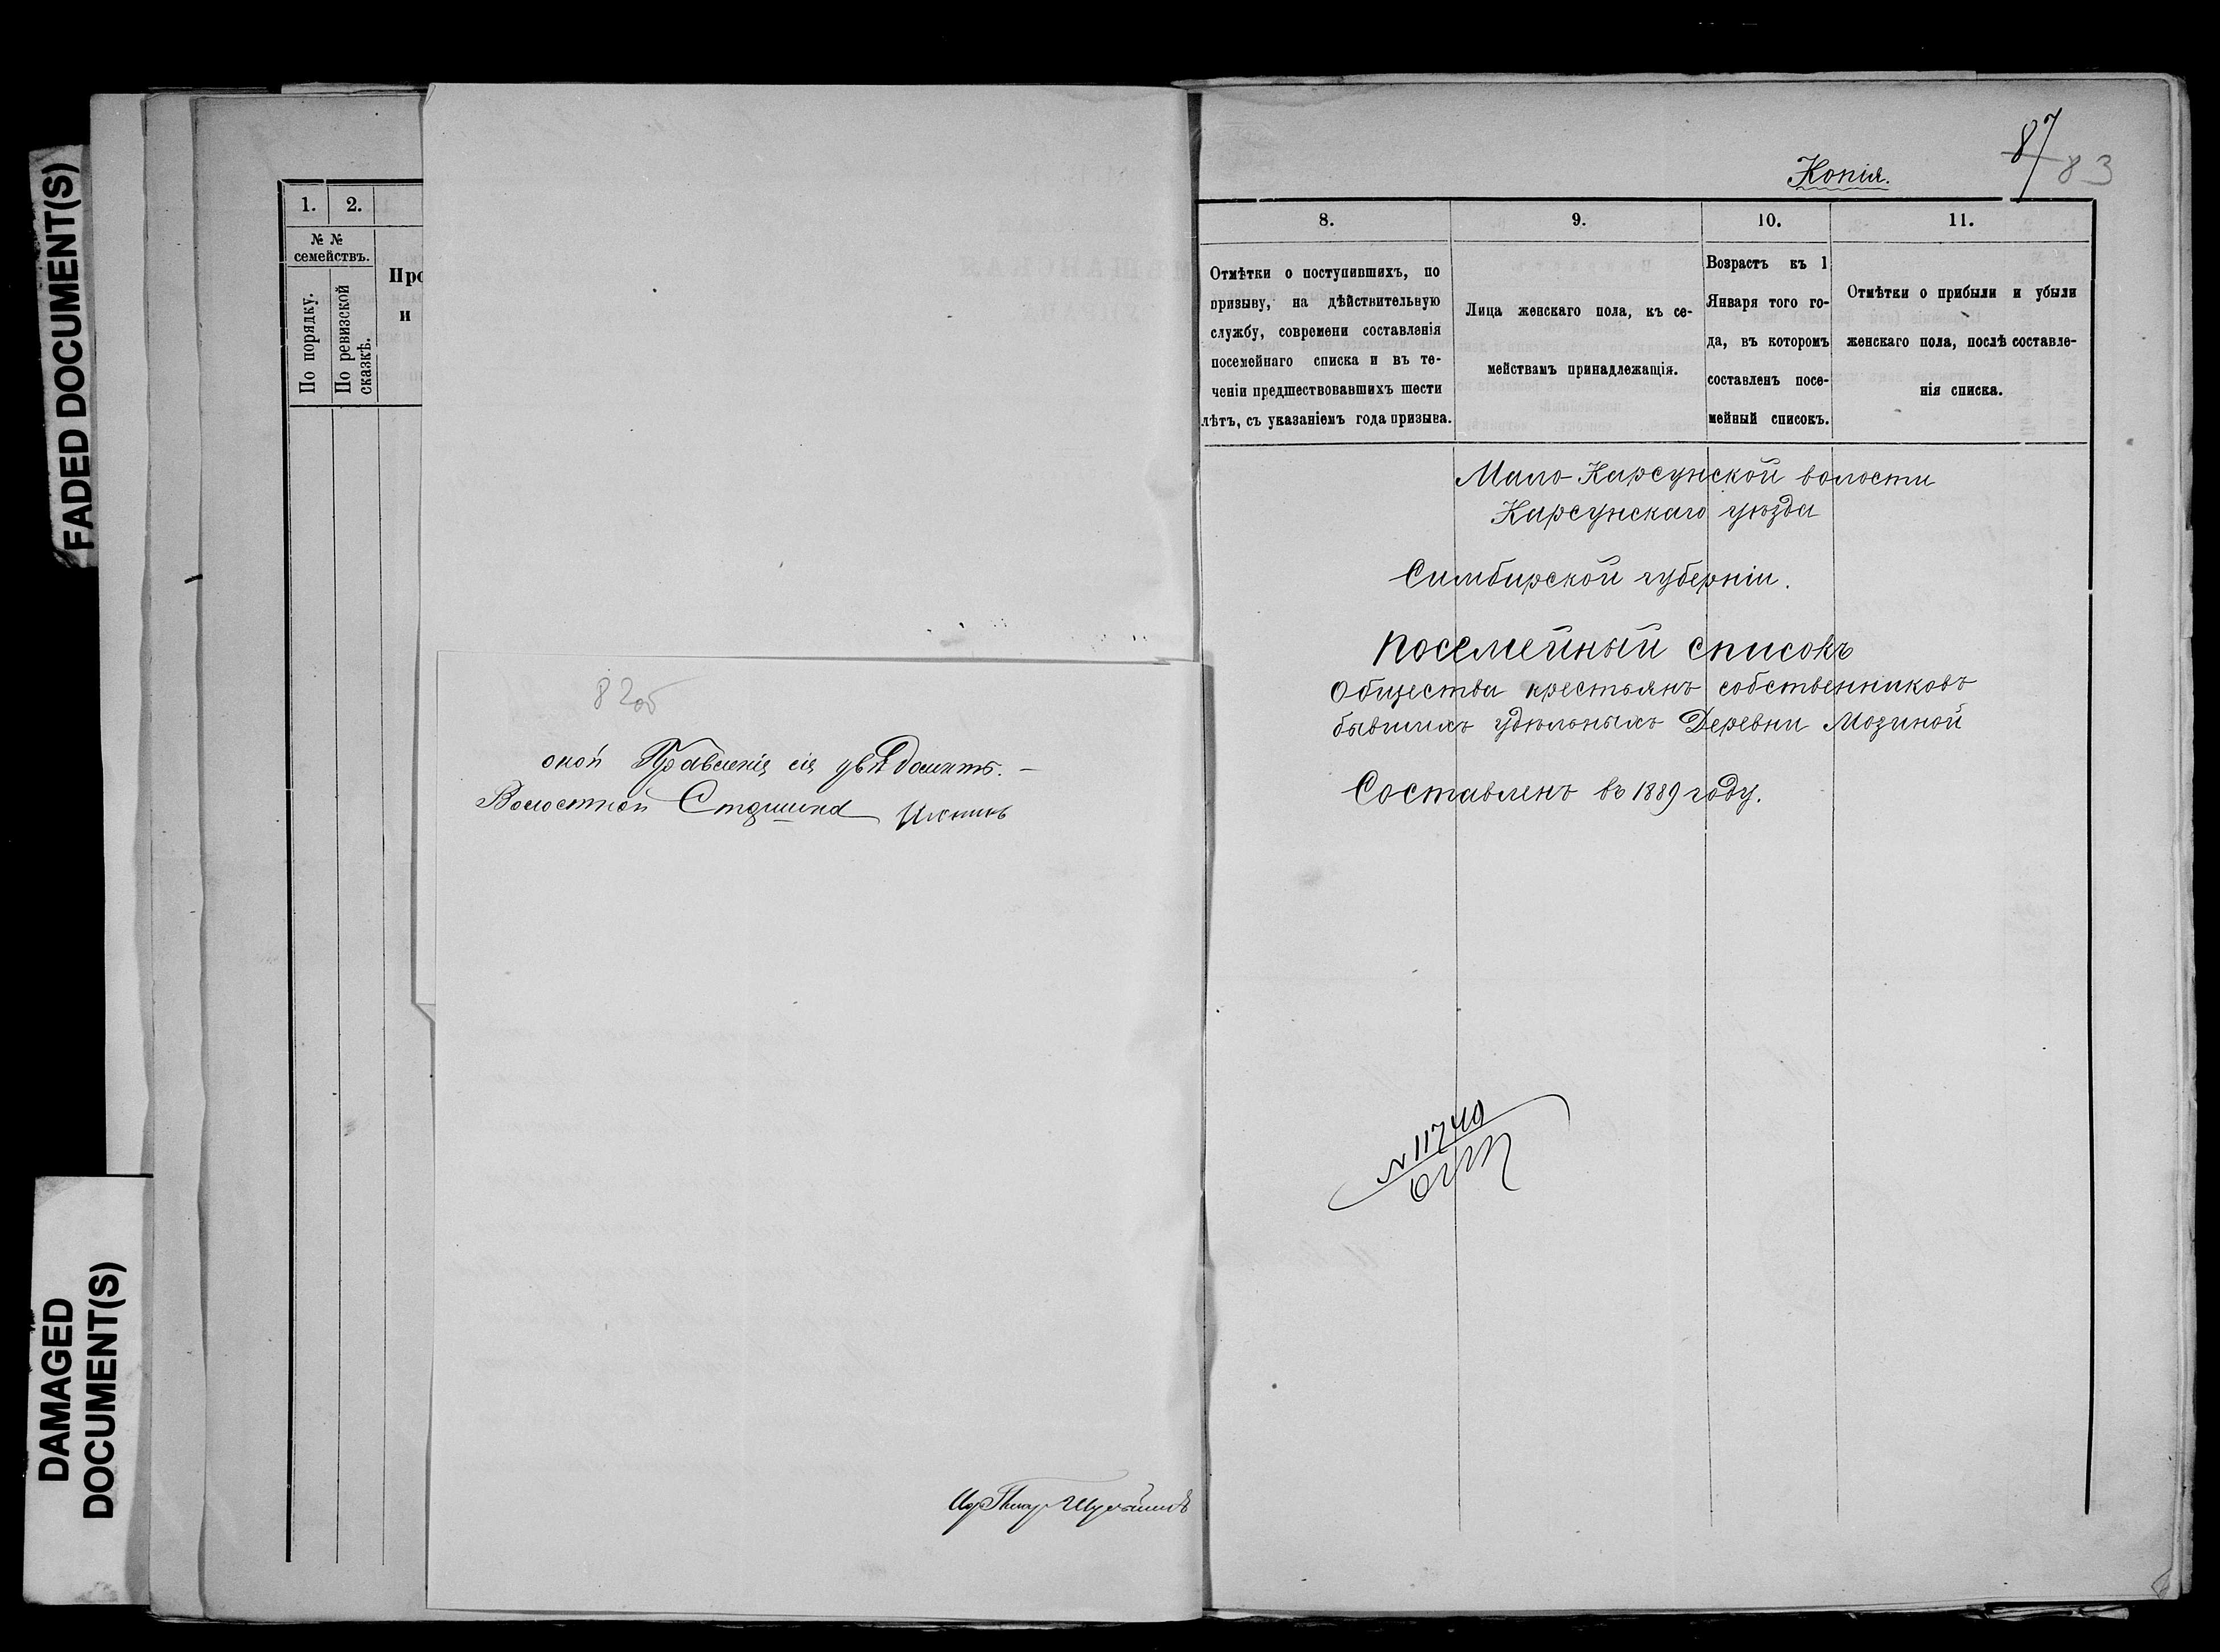 FADED DOCUMENT(S)
DAMAGED
DOCUMENT(S)
1. 2.
№ №
семействъ.
По порядку.
По ревизской
сказкѣ.
Про
и
82об
окой Правленія сія увѣдомитъ. —
Волостной Старшина
Копія.
87
83
8. 9. 10. 11.
Отмѣтки о поступившихъ, по
призыву, на дѣйствительную
службу, современи составленія
посемейнаго списка и въ те-
ченіи предшествовавшихъ шести
лѣтъ, съ указаніемъ года призыва.
Лица женскаго пола, къ се-
мействамъ принадлежащія.
Возрастъ къ 1
Января того го-
да, въ которомъ
составленъ посе-
мейный списокъ.
Отмѣтки о прибыли и убыли
женскаго пола, послѣ составле-
нія списка.
Мало Карсунской волости
Карсунскаго уѣзда
Симбирской губерніи.
Посемейный списокъ
Общества крестьянъ собственниковъ
бывшихъ удѣльныхъ Деревни Мозиной
Составленъ въ 1889 году.
№ 11740